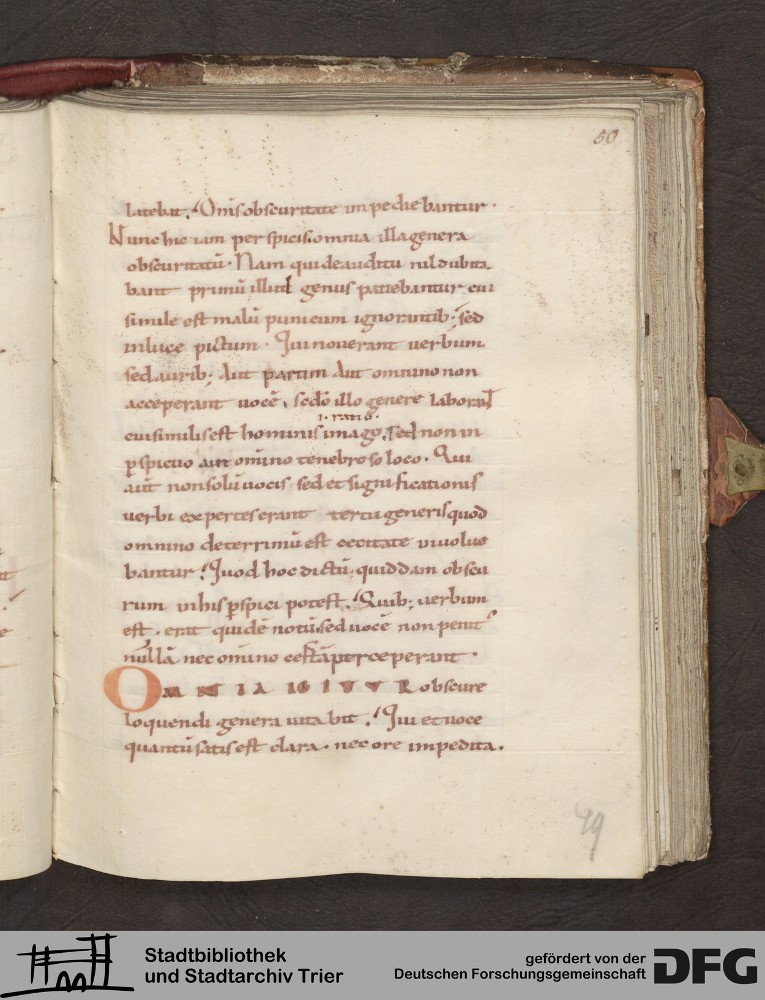 50
latebat. Om̄is obscuritate impediebantur.
Nunc hic iam perspicis omnia illa genera
obscuritatū. Nam qui de auditu nil dubita
bant primū illud genus patiebantur cui
simile est malū punicum ignorantib; sed
in luce pictum. Qui nouerant uerbum
sed aurib; aut partim aut omnino non
acceperant uocē,
.i. ratio.
cui similis est hominis imago, sed non in
pspicuo aut omino tenebroso loco. Qui
aūt non solū uocis sed et significationis
uerbi expertes erant tertii generis quod
omnino deterrimū est cecitate inuolue
bantur. Quod hoc dictū quiddam obscu
rum in his pspici potest. Quib; uerbum
est. erat quidē notū. sed uocē non penit᾽
nullā nec omino certā perceperant.
OMNIA IGITUR obscure
loquendi genera uitabit. Qui et uoce
quantū satis est clara. nec ore impedita.
49
Stadtbibliothek
und Stadtarchiv Trier
gefördert von der
Deutschen Forschungsgemeinschaft
DFG